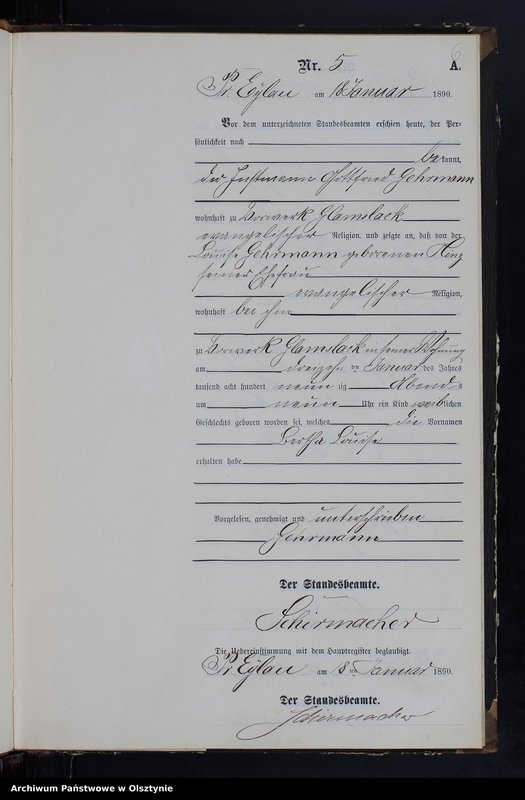 6
Nr. 5 A.
Pr. Eylau am 18 Januar 1890.
Vor dem unterzeichneten Standesbeamten erschien heute, der Per-
sönlichkeit nach
bekannt,
der Instmann Gottfried Gehrmann
wohnhaft zu Vorwerk Glamslack
evangelischer Religion, und zeigte an, daß von der
Louise Gehrmann geborenen Hinz
seiner Ehefrau
evangelischer Religion,
wohnhaft bei ihm
zu Vorwerk Glamslack in seiner Wohnung
am dreizehn ten Januar des Jahres
tausend acht hundert neun zig Abends
um neun Uhr ein Kind weiblichen
Geschlechts geboren worden sei, welches die Vornamen
Bertha Louise
erhalten habe
Vorgelesen, genehmigt und unterschrieben
Gehrmann
Der Standesbeamte.
Schirmacher
Die Uebereinstimmung mit dem Hauptregister beglaubigt.
Pr. Eylau am 18 ten Januar 1890.
Der Standesbeamte.
Schirmacher
Archiwum Państwowe w Olsztynie